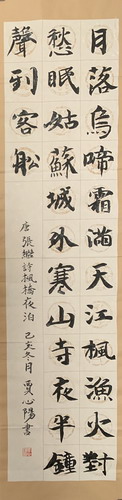 月落烏啼霜滿天江楓漁火對
愁眠姑蘇城外寒山寺夜半鍾
聲到客舩
唐張繼詩楓橋夜泊 己亥冬月 心陽書